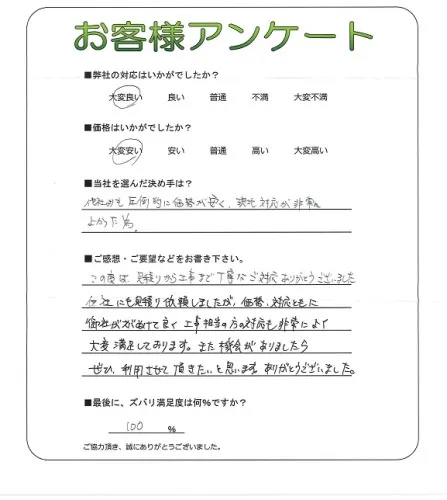 お客様アンケート
■弊社の対応はいかがでしたか？
大変良い 良い 普通 不満 大変不満
■価格はいかがでしたか？
大変安い 安い 普通 高い 大変高い
■当社を選んだ決め手は？
他社よりも圧倒的に価格が安く、対応が非常に
よかった為。
■ご感想・ご要望などをお書き下さい。
この度は、見積りから工事まで丁寧なご対応ありがとうございました
他社にも見積り依頼しましたが、価格、対応ともに
御社がずばぬけて良く工事担当の方の対応も非常によく
大変満足しております。また機会がありましたら
ぜひ、利用させて頂きたいと思います。ありがとうございました。
■最後に、ズバリ満足度は何％ですか？
100 %
ご協力頂き、誠にありがとうございました。